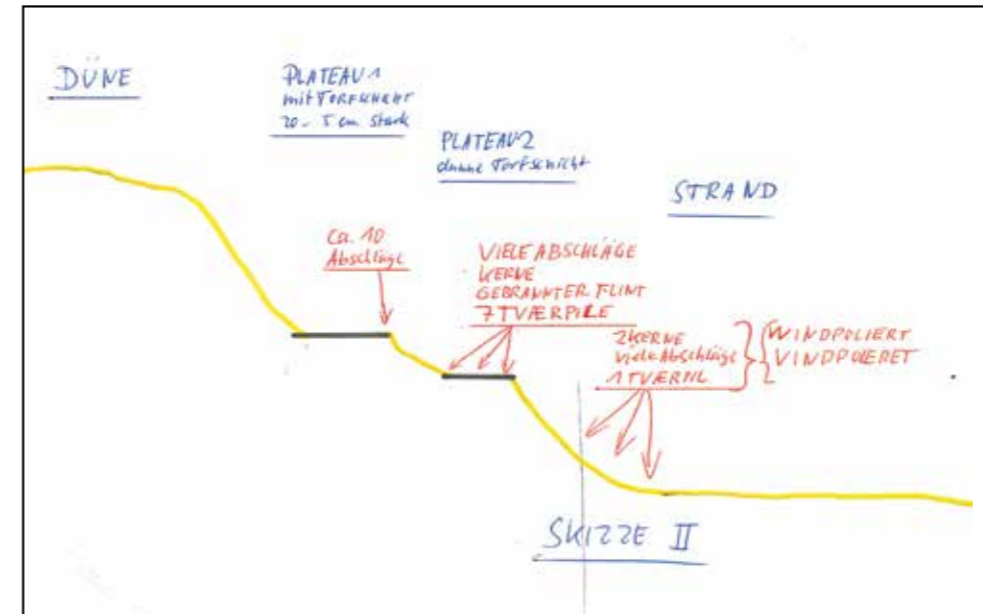 DÜNE
PLATEAU 1
mit TORFSCHICHT
20 - 5 cm stark
PLATEAU 2
dünne Torfschicht
STRAND
Ca. 10
Abschläge
VIELE ABSCHLÄGE
KERNE
GEBRANNTER FLINT
7 TVÆRPILE
2 KERNE
viele Abschläge
1 TVÆRPIL
WINDPOLIERT
VINDPOLERET
SKIZZE II